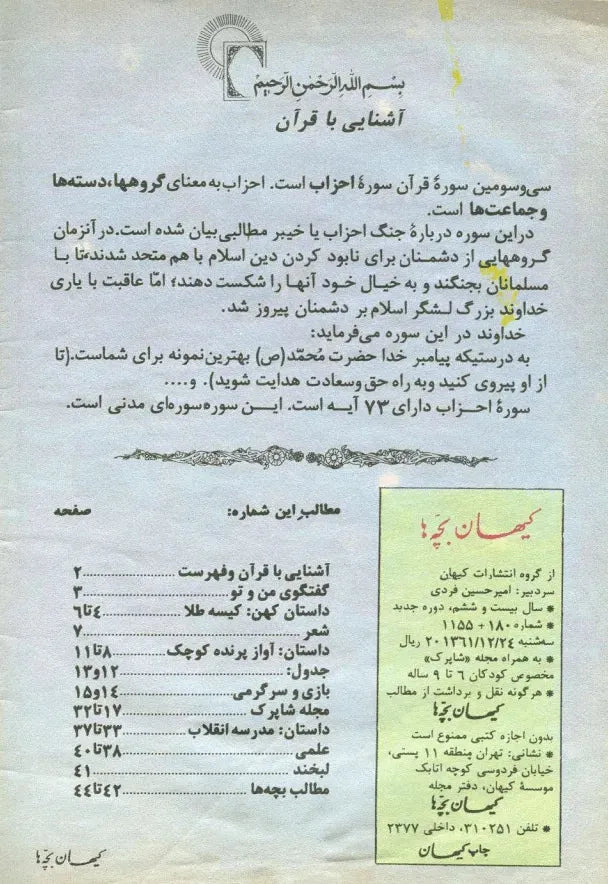 بسم الله الرحمن الرحیم
آشنایی با قرآن
سی‌وسومین سورهٔ قرآن سورهٔ احزاب است. احزاب به معنای گروهها، دسته‌ها
و جماعت‌ها است.
دراین سوره دربارهٔ جنگ احزاب یا خیبر مطالبی بیان شده است. در آنزمان
گروههایی از دشمنان برای نابود کردن دین اسلام با هم متحد شدند، تا با
مسلمانان بجنگند و به خیال خود آنها را شکست دهند؛ امّا عاقبت با یاری
خداوند بزرگ لشگر اسلام بر دشمنان پیروز شد.
خداوند در این سوره می‌فرماید:
به درستیکه پیامبر خدا حضرت مُحمّد(ص) بهترین نمونه برای شماست.(تا
از او پیروی کنید و به راه حق وسعادت هدایت شوید). و....
سورهٔ احزاب دارای ۷۳ آیه است. این سوره سوره‌ای مدنی است.
مطالب این شماره: صفحه
آشنایی با قرآن وفهرست ........ ۲
گفتگوی من و تو ........ ۳
داستان کهن: کیسه طلا ........ ۴تا۶
شعر ........ ۷
داستان: آواز پرنده کوچک ........ ۸تا۱۱
جدول: ........ ۱۲و۱۳
بازی و سرگرمی ........ ۱۴و۱۵
مجله شاپرک ........ ۱۷تا۳۲
داستان: مدرسه انقلاب ........ ۳۳تا۳۷
علمی ........ ۳۸تا۴۰
لبخند ........ ۴۱
مطالب بچه‌ها ........ ۴۲تا۴۴
کیهان بچه‌ها
از گروه انتشارات کیهان
سردبیر: امیرحسین فردی
* سال بیست و ششم، دوره جدید
* شماره ۱۸۰ + ۱۱۵۵
سه‌شنبه ۱۳۶۱/۱۲/۲۴ ۲۰ ریال
* به همراه مجله «شاپرک»
مخصوص کودکان ۶ تا ۹ ساله
* هرگونه نقل و برداشت از مطالب
کیهان بچه‌ها
بدون اجازه کتبی ممنوع است
* نشانی: تهران منطقه ۱۱ پستی،
خیابان فردوسی کوچه اتابک
موسسهٔ کیهان، دفتر مجله
کیهان بچه‌ها
* تلفن ۳۱۰۲۵۱، داخلی ۲۳۷۷
چاپ کیهان
کیهان بچه‌ها